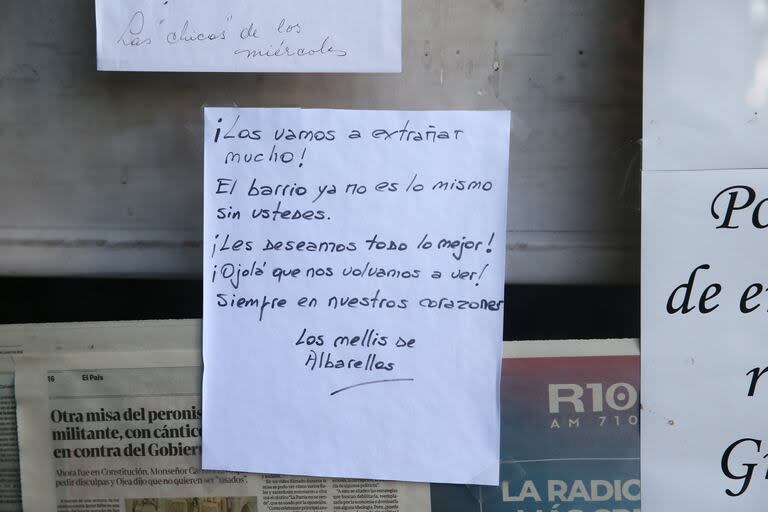 Las "chicas" de los
miércoles
¡Los vamos a extrañar
mucho!
El barrio ya no es lo mismo
sin ustedes.
¡Les deseamos todo lo mejor!
¡Ojalá que nos volvamos a ver!
Siempre en nuestros corazones
Los mellis de
Albarellos
16 El País
Otra misa del peronis
militante, con cántico
en contra del Gobier
Ahora fue en Constitución. Monseñor Car
pedir disculpas y Ojea dijo que no quieren ser "usados".
R10
AM 710
LA RADIO
Po
de e
r
G